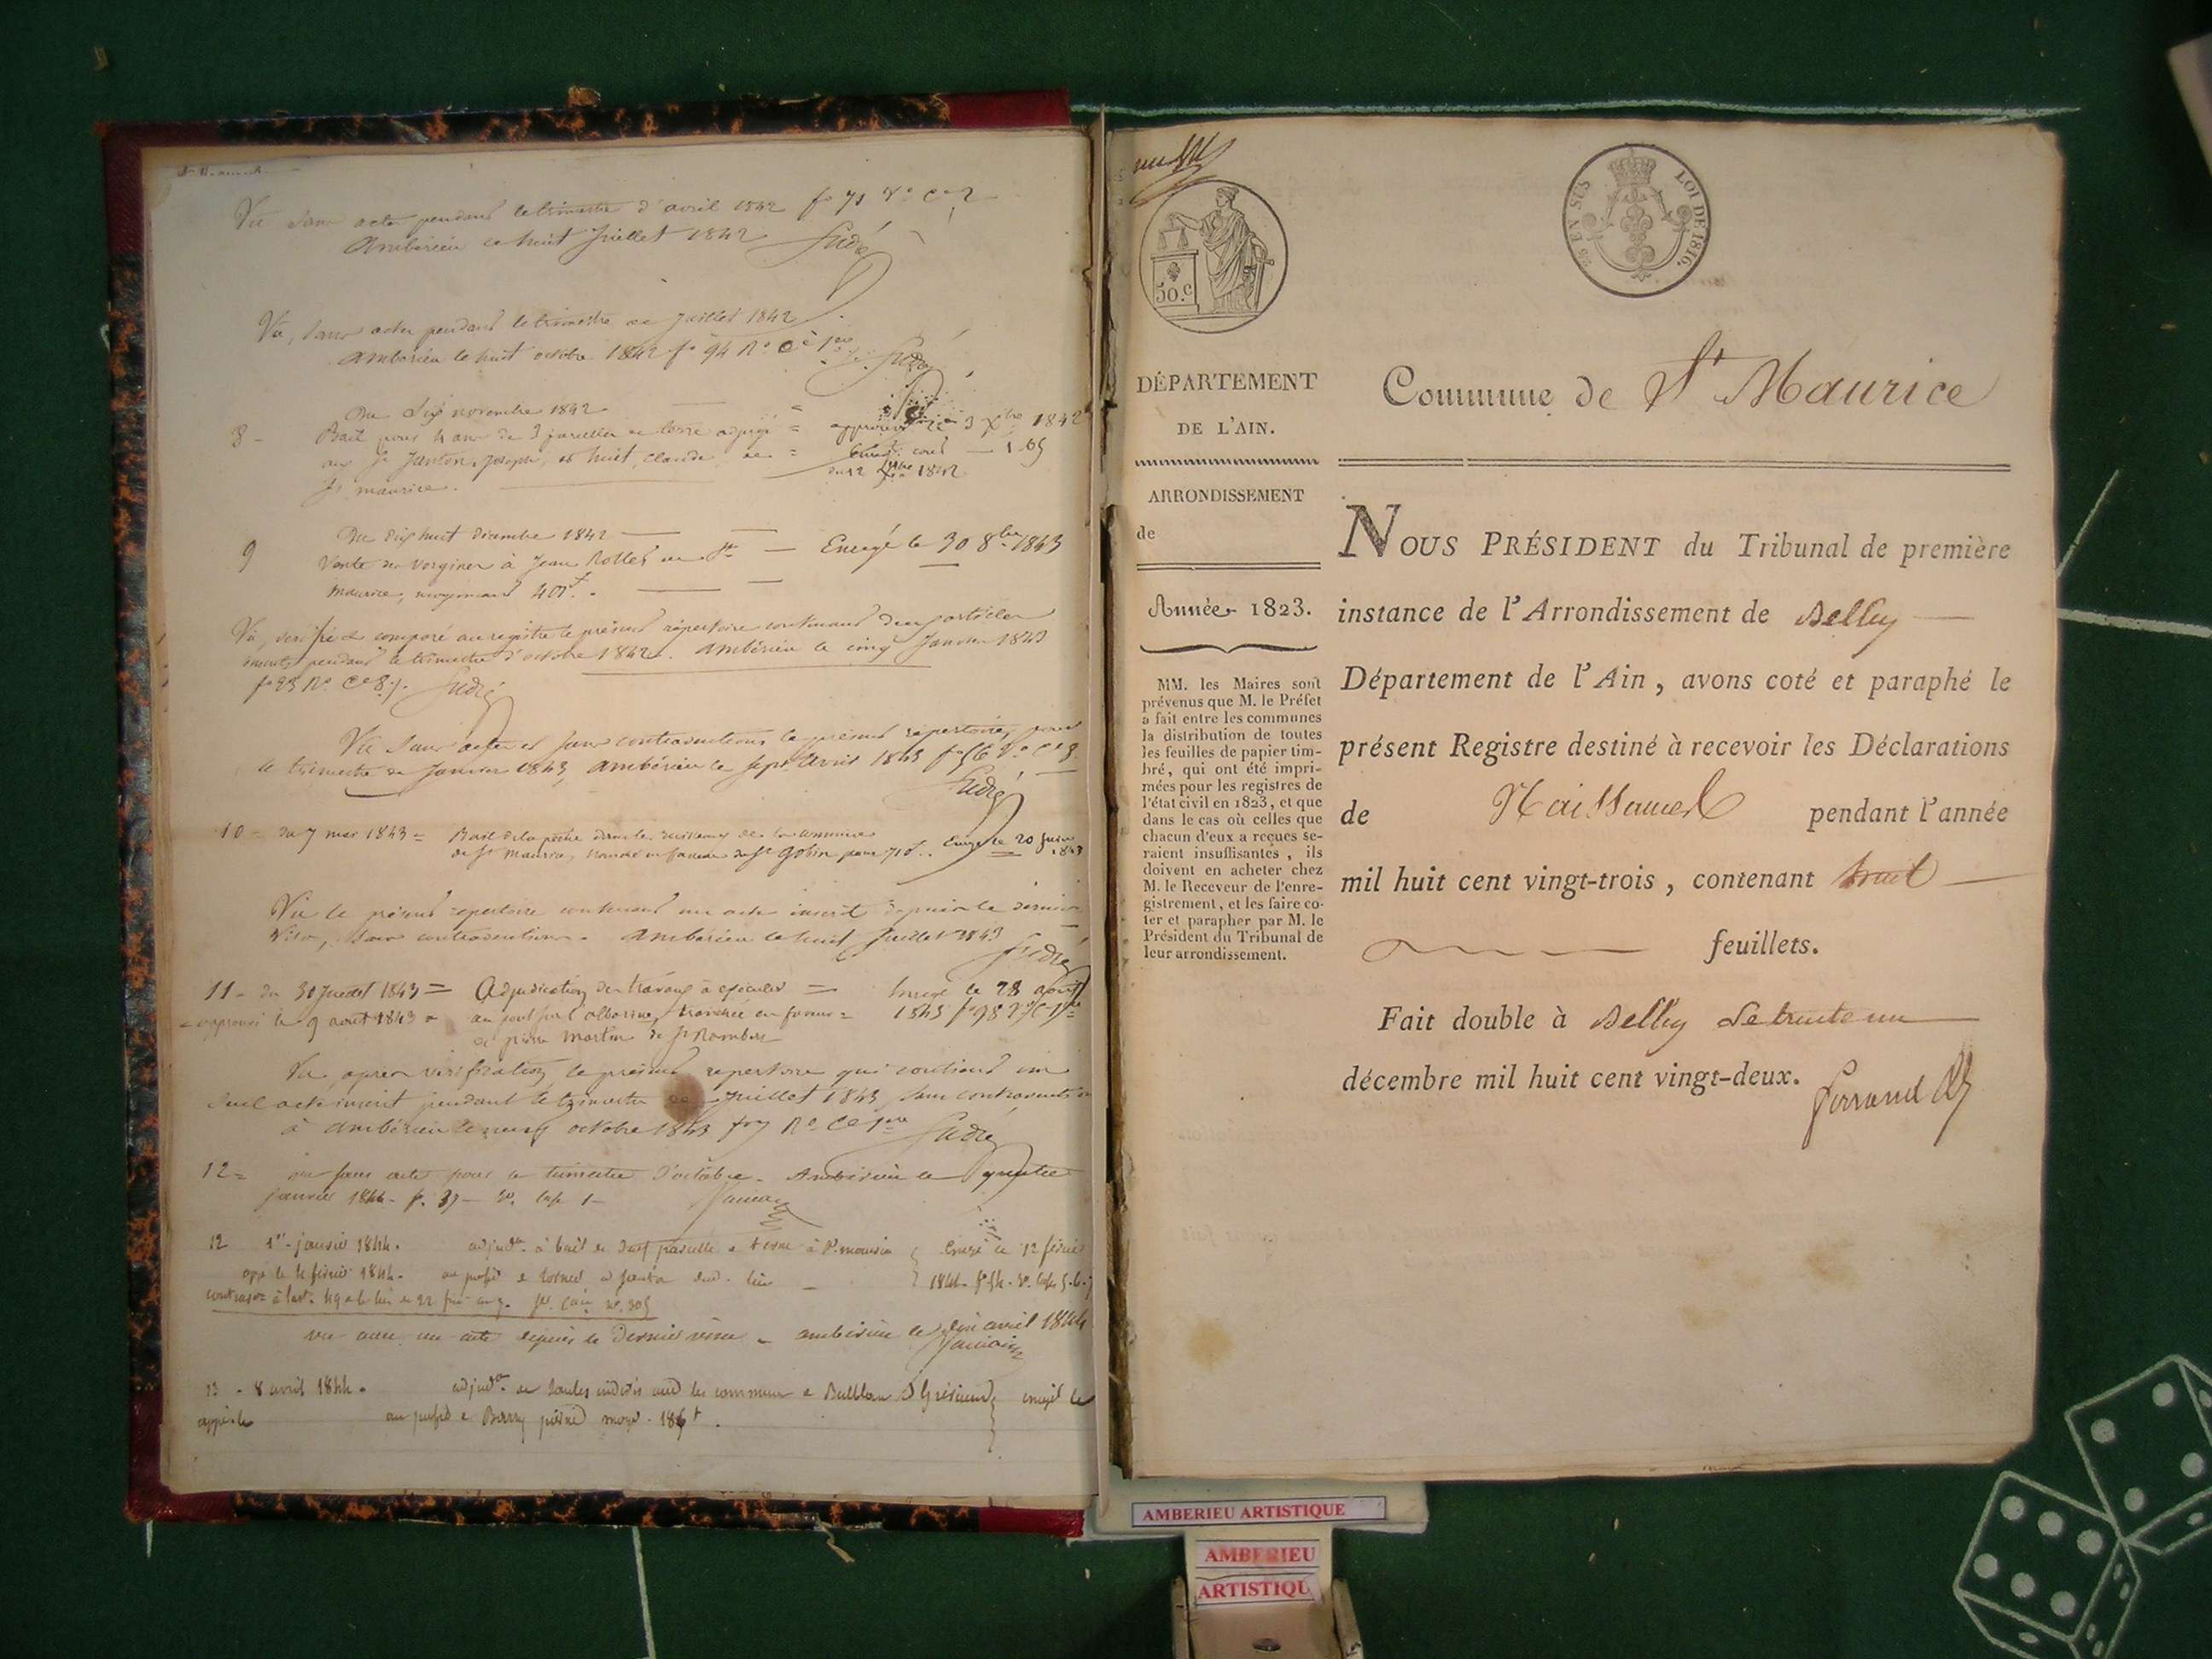 Vu sans acte pendant le trimestre d'avril 1842 fo 71 Vo Ce 2
Ambérieu ce huit Juillet 1842
Vu, sans actes pendant le trimestre de Juillet 1842
Ambérieu le huit octobre 1842 fo 94 Ro Ce 1ere
Du dix novembre 1842
8 - Bail pour 4 ans de 3 parcelles de terre adjugé = approuvé le 3 Xbre 1842
aux Sr Janton Joseph, et huit, claude de = 1.65
St maurice. du 12 Xbre 1842
Du dix huit décembre 1842
9 Vente de verginer à Jean Rollet de St — Enregé le 30 8bre 1843
maurice, moyennant 401f.
Vu, vérifié & comparé au registre le présent répertoire contenant deux articles
inscrits pendant le trimestre d'octobre 1842. Ambérieu le cinq Janvier 1843
fo 23 Ro Ce 8
Vu sans actes et sans contraventions le présent répertoire, pour
le trimestre de Janvier 1843, Ambérieu le sept avril 1843 fo 56 Vo Ce 8
10 = du 7 mai 1843 = Bail de la pêche dans les ruisseaux de la commune
de St Maurice, en faveur du Sr Gobin pour 71f. Enregé le 20 Juin 1843
Vu le présent répertoire contenant un acte inscrit depuis le dernier
visa, sans contravention. Ambérieu le huit Juillet 1843
11 - du 30 Juillet 1843 = Adjudication des travaux à exécuter = Enregé le 28 août
= approuvé le 9 août 1843 = au pont sur l'albarine, en faveur = 1843
de pierre Martin de St Rambert
Vu, après vérification le présent répertoire qui contient un
seul acte inscrit pendant le trimestre de Juillet 1843, sans contravention
à Ambérieu le neuf octobre 1843 fo 7 Ro Ce 1ere
12 = vu sans acte pour le trimestre d'octobre. Ambérieu le
janvier 1844 - f. 37 - Vo. case 1 -
12 1er janvier 1844. adjudon à bail de parcelle de terre à St maurice Enregé le 12 février
appé le 4 février 1844. au profit de 1844. fo 54. Vo. case 5.6.
vu avec un acte depuis le dernier visa - ambérieu le dix avril 1844
13 - 8 avril 1844. adjudon de saules indivis avec les communes enregé le
appé le au profit de pierre moyt. 186f.
50.c
26 EN SUS
LOI DE 1816.
DÉPARTEMENT
DE L'AIN.
ARRONDISSEMENT
de
Année 1823.
MM. les Maires sont
prévenus que M. le Préfet
a fait entre les communes
la distribution de toutes
les feuilles de papier tim-
bré, qui ont été impri-
mées pour les registres de
l'état civil en 1823, et que
dans le cas où celles que
chacun d'eux a reçues se-
raient insuffisantes, ils
doivent en acheter chez
M. le Receveur de l'enre-
gistrement, et les faire co-
ter et parapher par M. le
Président du Tribunal de
leur arrondissement.
Commune de St Maurice
NOUS PRÉSIDENT du Tribunal de première
instance de l'Arrondissement de Belley
Département de l'Ain, avons coté et paraphé le
présent Registre destiné à recevoir les Déclarations
de Naissances pendant l'année
mil huit cent vingt-trois, contenant huit
feuillets.
Fait double à Belley Le trente un
décembre mil huit cent vingt-deux.
AMBERIEU ARTISTIQUE
AMBERIEU
ARTISTIQU